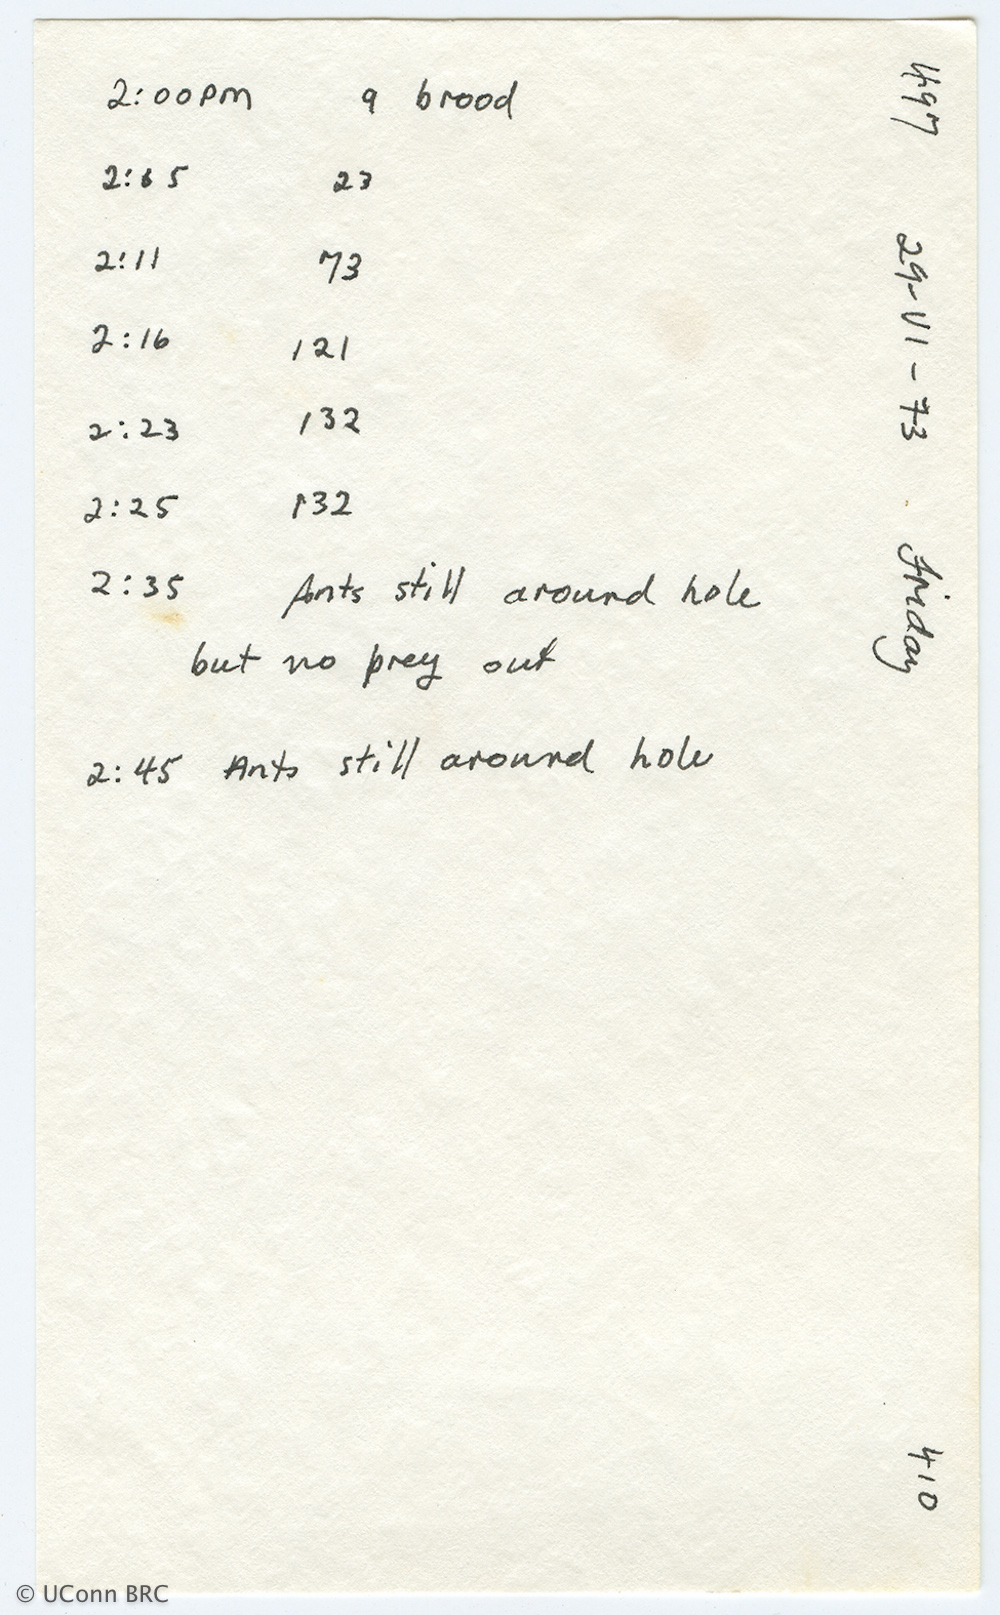 2:00PM 9 brood
2:05 23
2:11 73
2:16 121
2:23 132
2:25 132
2:35 Ants still around hole
but no prey out
2:45 Ants still around hole
H97 29-VI-73 Friday 410
© UConn BRC